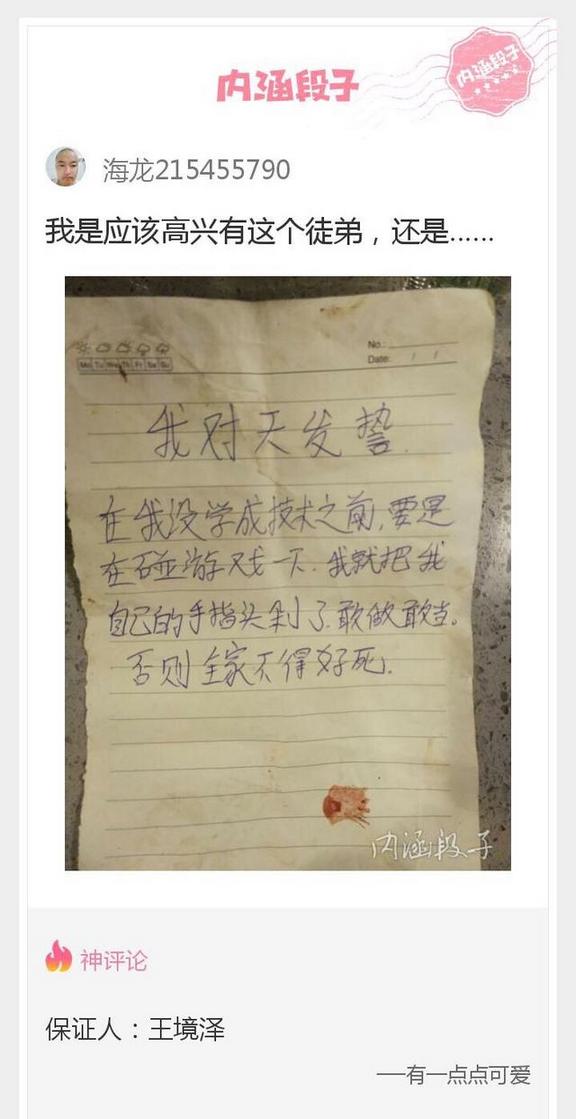 内涵段子
内涵段子
海龙215455790
我是应该高兴有这个徒弟，还是……
No.:
Date: / /
Mo Tu We Th Fr Sa Su
我对天发誓.
在我没学成技术之前,要是
在碰游戏一下.我就把我
自己的手指头剁了.敢做敢当。
否则全家不得好死.
内涵段子
神评论
保证人：王境泽
──有一点点可爱